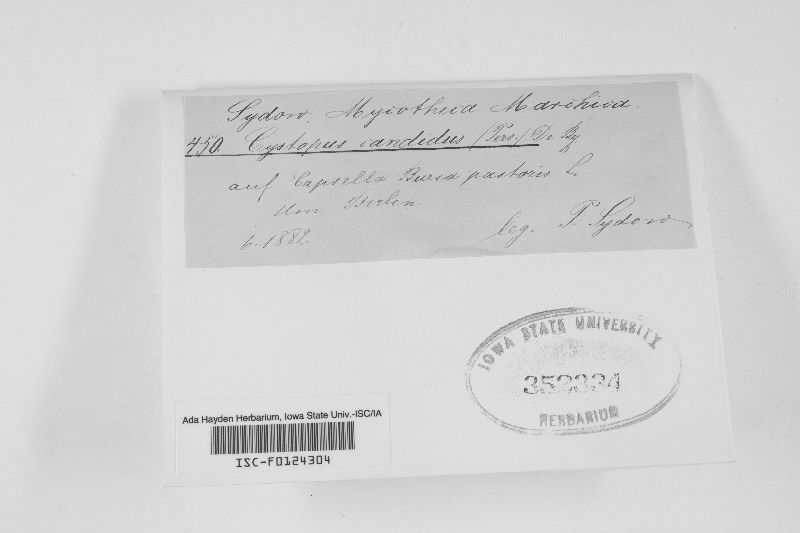 Sydow, Mycotheca Marchica.
450. Cystopus candidus (Pers.) De By
auf Capsella Bursa pastoris L.
Um Berlin
6. 1882. leg. P. Sydow
IOWA STATE UNIVERSITY
352334
HERBARIUM
Ada Hayden Herbarium, Iowa State Univ.-ISC/IA
ISC-F0124304